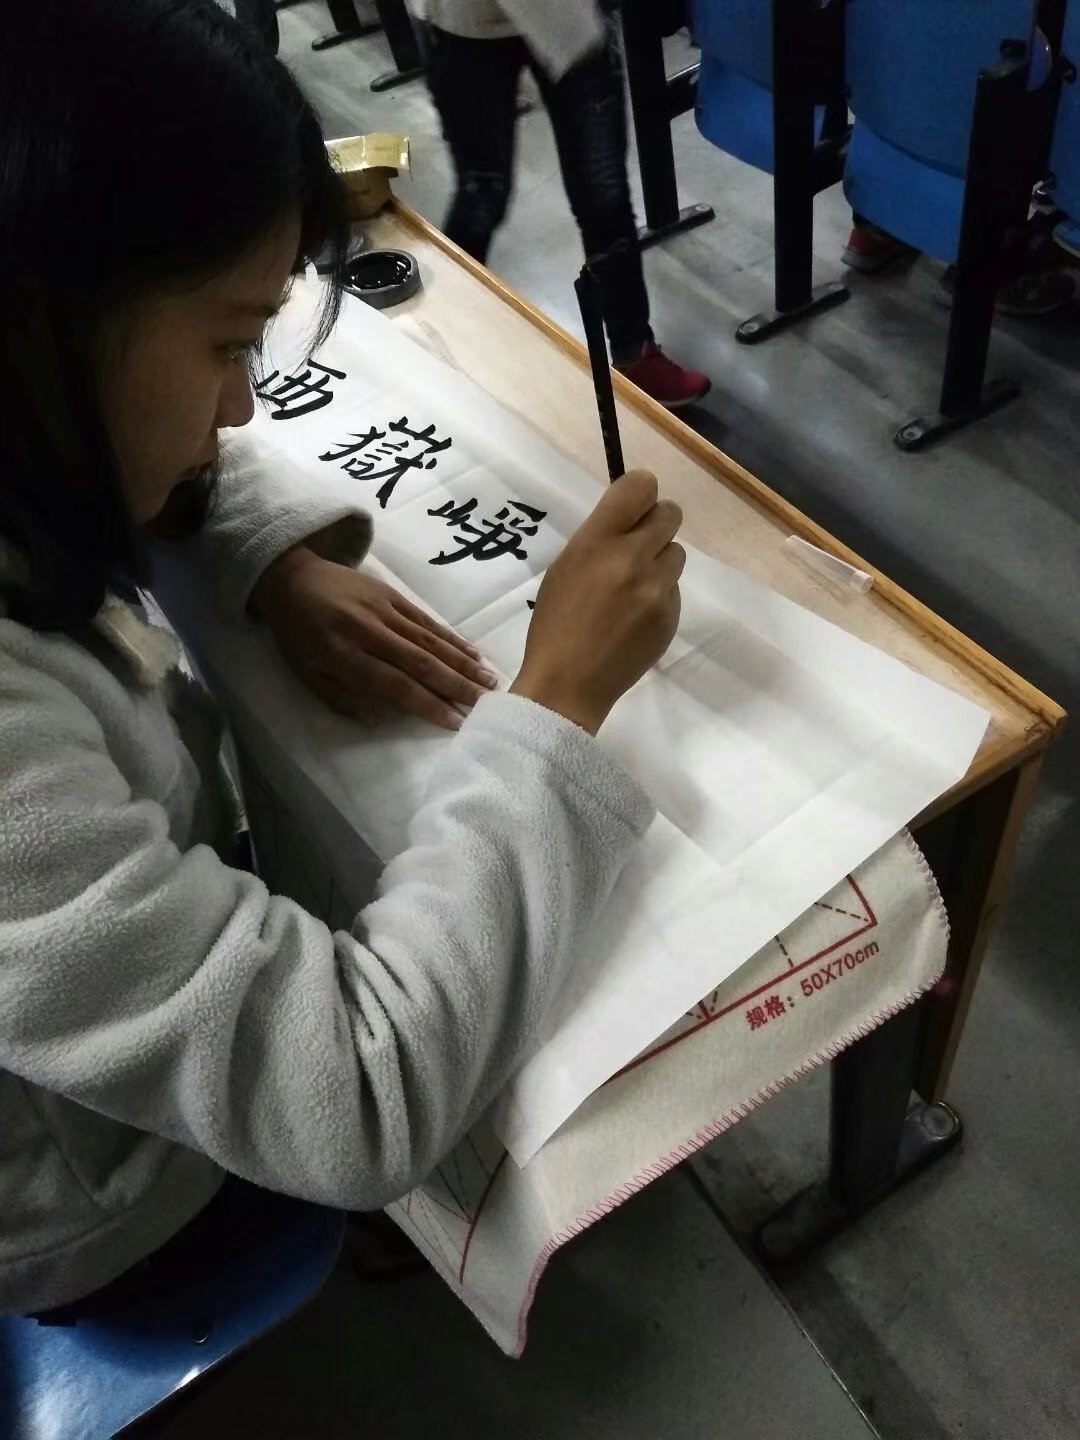 西嶽崢
规格：50X70cm